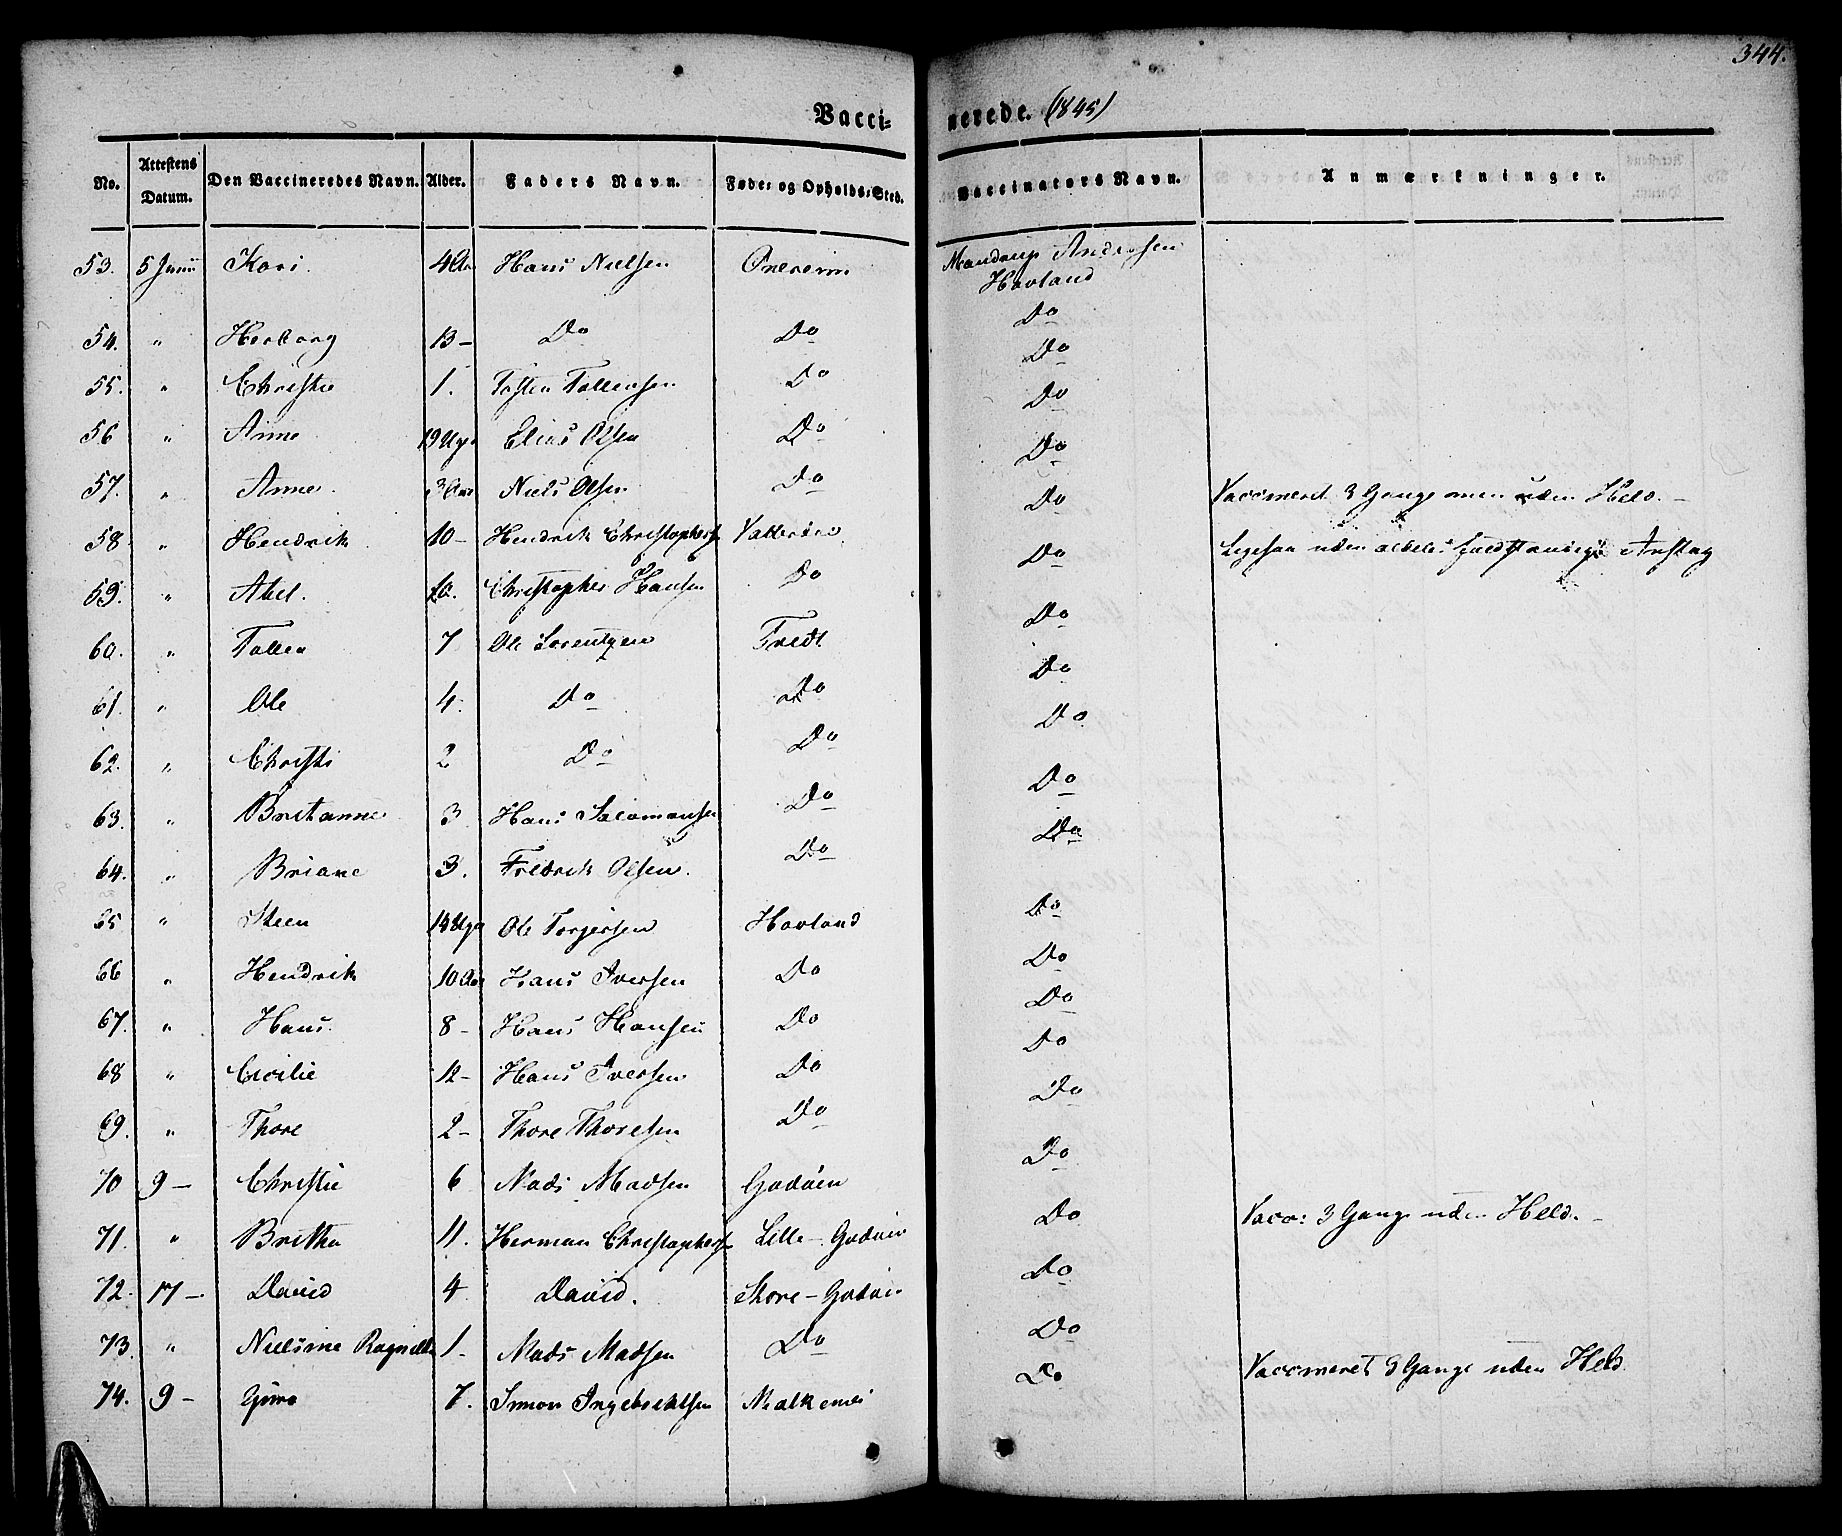 344.
Vacci= nerede. (1845)
No. Attestens Datum. Den Vaccineredes Navn. Alder. Faders Navn. Føde= og Opholds=Sted. Vaccinators Navn. Anmærkninger.
53. 5 Juni Kari. 4 Hans Nielsen Mandrup Andersen
Havland
54. " Herborg 13 – Do Do Do
Do
55. " Christie 1. Tosten Tollevsen Do Do
56 " Anne 19 Ug Elias Olsen Do Do
57. " Anne 3 Niels Olsen Do Do Vaccineret 3 Gange men uden Held. –
58 " Hendrik 10 – Hendrik Christophers Do Ligesaa uden aldeles Anslag
59. " Abel. 10. Christopher Hansen Do Do
60. " Tollev 7 Ole Lorentzen Tredt Do
61. " Ole 4. Do Do Do
62. " Christi 2 Do Do Do
63. " Britanne 3 Hans Salamonsen Do Do
64. " Briane 3. Fredrik Olsen. Do
65 " Steen Ole Torgersen Havland Do
66 " Hendrik 10 Hans Iversen Do Do
67. " Hans. 8 – Hans Hansen Do Do
68 " Cicilie 12 – Hans Iversen Do Do
69. " Thore 2 – Thore Thoresen Do Do
70 9 – Christie 6 Mads Madsen Godøen Do
71. " Britha 11. Herman Christophers Lille – Godøen Do Vacc: 3 Gange uden Held. –
72. 17 – David 4 David. Store – Godøen Do
73. " Nielsine Ragnilda 1 – Mads Madsen Do Do
74. 9 – 7. Simon Ingebrechtsen Do Vaccineret 3 Gange uden Held.